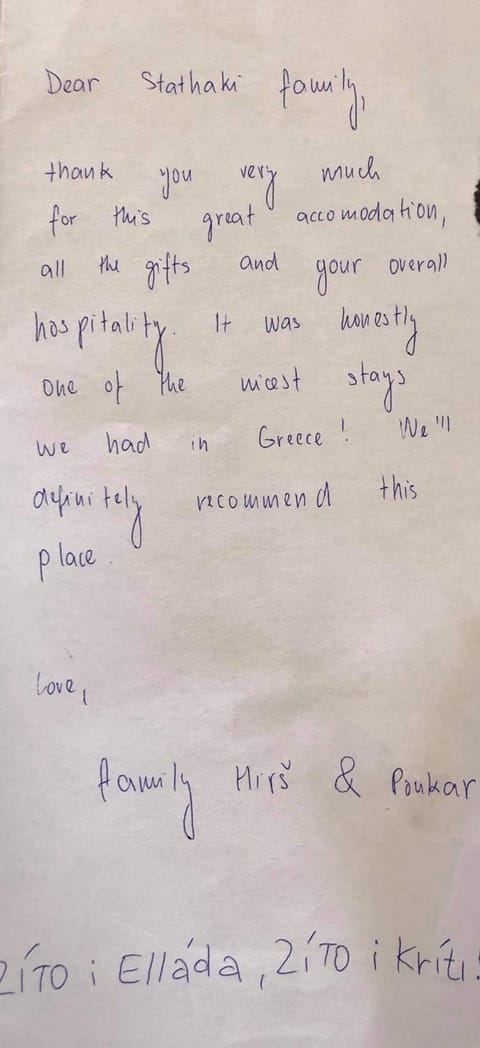 Dear Stathaki family,
thank you very much
for this great accomodation,
all the gifts and your overall
hospitality. It was honestly
one of the nicest stays
we had in Greece! We'll
definitely recommend this
place.
Love,
family Hirš & Poukar
Zíto i Elláda, Zíto i Kríti!